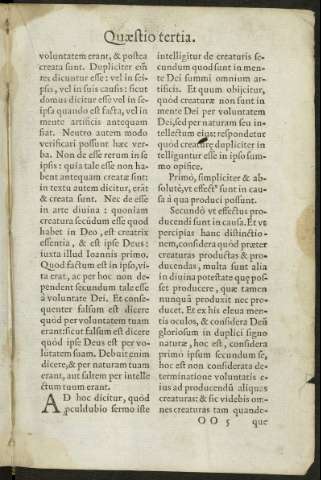 Quæstio tertia.
voluntatem erant, & postea
creata sunt. Dupliciter em̃
res dicuntur esse: vel in sei-
psis, vel in suis causis: sicut
domus dicitur esse vel in se-
ipsa quando est facta, vel in
mente artificis antequam
fiat. Neutro autem modo
verificari possunt hæc ver-
ba. Non de esse rerum in se
ipsis: quia tale esse non ha-
bent antequam creatæ sint:
in textu autem dicitur, erãt
& creata sunt. Nec de esse
in arte diuina: quoniam
creatura secũdum esse quod
habet in Deo, est creatrix
essentia, & est ipse Deus:
iuxta illud Ioannis primo.
Quod factum est in ipso, vi-
ta erat, ac per hoc non de-
pendent secundum tale esse
à voluntate Dei. Et conse-
quenter falsum est dicere
quòd per voluntatem tuam
erant: sicut falsum est dicere
quòd ipse Deus est per vo-
lutatem suam. Debuit enim
dicere, & per naturam tuam
erant, aut saltem per intelle
ctum tuum erant.
AD hoc dicitur, quòd
ꝓculdubio sermo iste
intelligitur de creaturis se-
cundum quod sunt in men-
te Dei summi omnium ar-
tificis. Et quum obijcitur,
quòd creaturæ non sunt in
mente Dei per voluntatem
Dei, sed per naturam seu in-
tellectum eius: respondetur
quòd creaturę dupliciter in
telliguntur esse in ipso sum-
mo opifice.
Primò, simpliciter & ab-
solutè, vt effectꝰ sunt in cau-
sa à qua produci possunt.
Secundò vt effectus pro-
ducendi sunt in causa. Et vt
percipias hanc distinctio-
nem, considera quòd præter
creaturas productas & pro-
ducendas, multa sunt alia
in diuina potestate quę pos-
set producere, quæ tamen
nunquã produxit nec pro-
ducet. Et ex his eleua men-
tis oculos, & considera Deũ
gloriosum in duplici signo
naturæ, hoc est, considera
primò ipsum secundum se,
hoc est non considerata de-
terminatione voluntatis e-
ius ad producendũ aliquas
creaturas: & sic videbis om-
nes creaturas tam quande-
OO 5 que